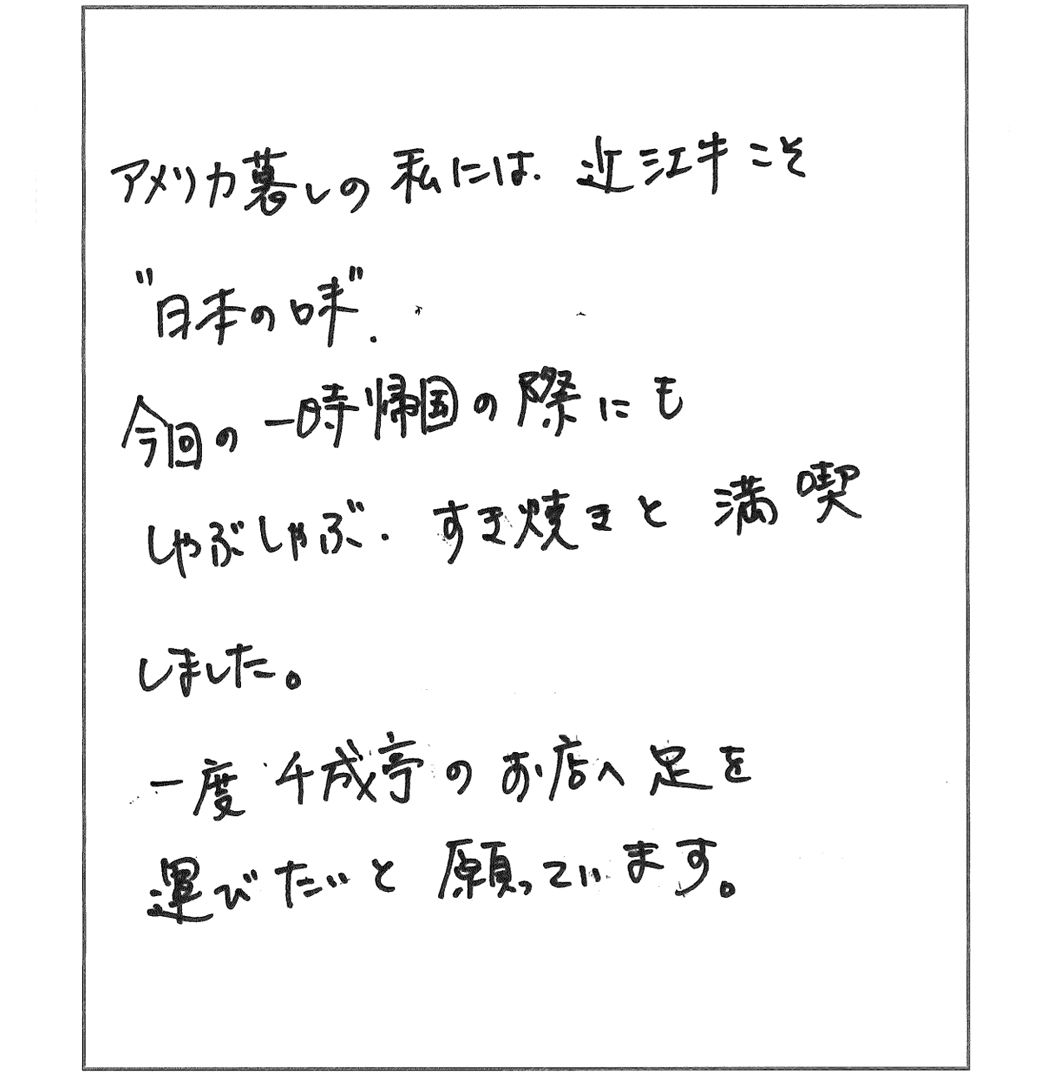 アメリカ暮しの私には、近江牛こそ
"日本の味".
今回の一時帰国の際にも
しゃぶしゃぶ、すき焼きと満喫
しました。
一度千成亭のお店へ足を
運びたいと願っています。